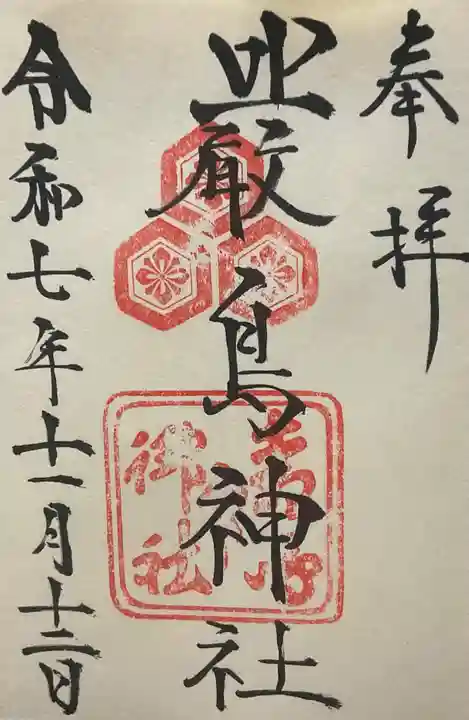 奉拝
嚴島神社
令和七年十一月十二日
御社